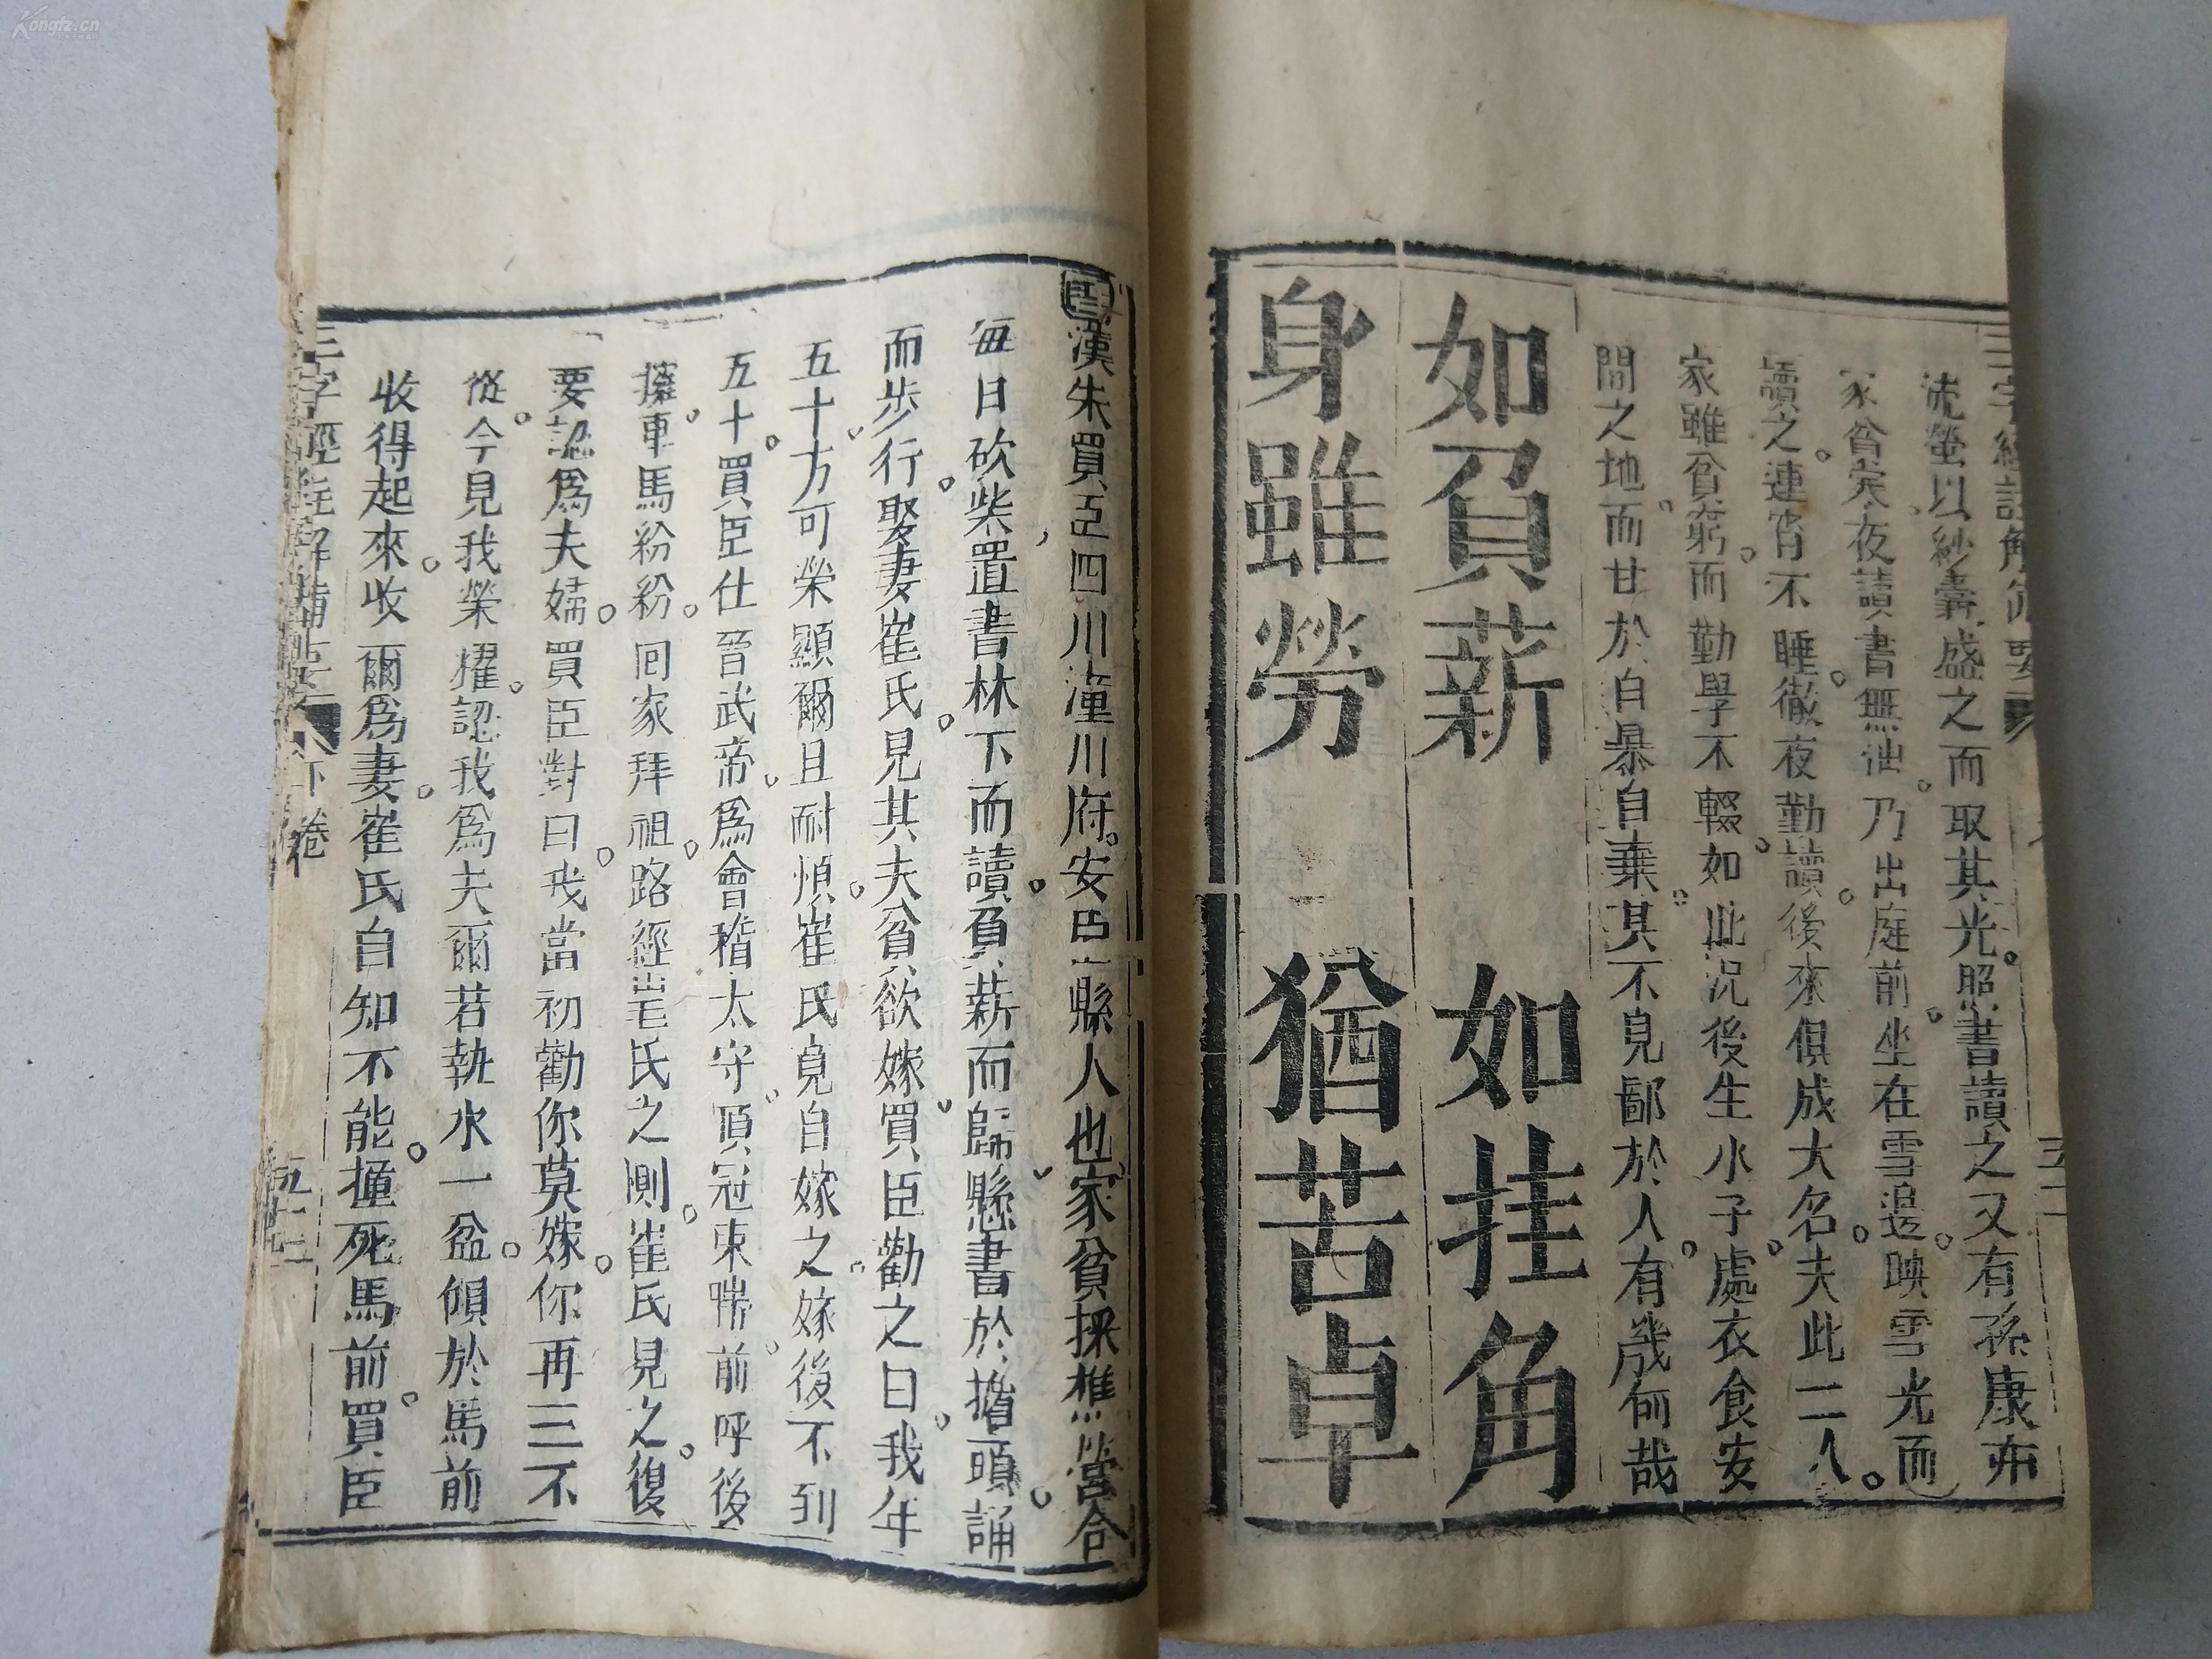 三字經註解備要
流螢以紗囊盛之而取其光照書讀之又有孫康亦
家貧矣夜讀書無油乃出庭前坐在雪邊映雪光而
讀之連宵不睡徹夜勤讀後來俱成大名夫此二人
家雖貧窮而勤學不輟如此況後生小子處衣食安
閒之地而甘於自暴自棄其不見鄙於人有幾何哉
如負薪 如挂角
身雖勞 猶苦卓
漢朱買臣四川潼川府安岳縣人也家貧採樵營合
每日砍柴置書林下而讀負薪而歸懸書於擔頭誦
而步行娶妻崔氏見其夫貧欲嫁買臣勸之曰我年
五十方可榮顯爾且耐煩崔氏竟自嫁之嫁後不到
五十買臣仕晉武帝為會稽太守頂冠束帶前呼後
擁車馬紛紛回家拜祖路經崔氏之側崔氏見之復
要認為夫婦買臣對曰我當初勸你莫嫁你再三不
從今見我榮耀認我為夫爾若執水一盆傾於馬前
收得起來收爾為妻崔氏自知不能撞死馬前買臣
三字經註解備要 下卷 五十二
Kongfz.cn